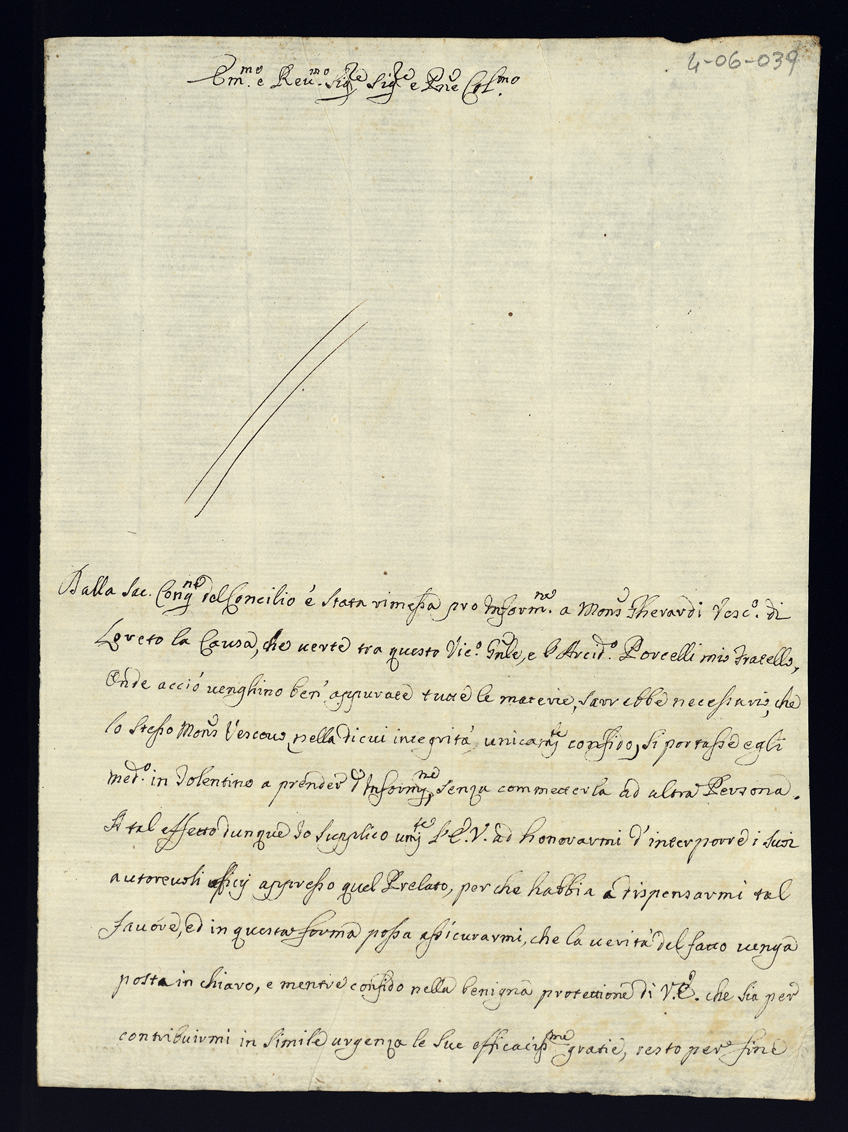 4-06-039
Em.mo e Reu.mo Sig.re Sig.re e Pne Col.mo
Dalla Sac. Cong.ne del Concilio é stata rimessa pro Inform.ne a Mons.r Gherardi Vesc.o di
Loreto la Causa, che uerte tra questo Vic.o Gnle, e l'Arcid.o Porcelli mio Fratello,
Onde acció uenghino ben' appurate tutte le materie, sarrebbe necessario, che
lo stesso Mons.r Vescouo, nella di cui integritá unicam.te confido, si portasse egli
med.o in Tolentino a prender l'Inform.ne, senza commetterla ad altra Persona.
A tal effetto dunque Io supplico um.te l'E.V. ad honorarmi d'interporre i suoi
autoreuoli officij appresso quel Prelato, perche habbia a dispensarmi tal
fauore, ed in questa forma possa assicurarmi, che la ueritá del fatto uenga
posta in chiaro, e mentre confido nella benigna protettione di V.E. che sia per
contribuirmi in simile urgenza le sue efficaciss.me gratie, resto per fine